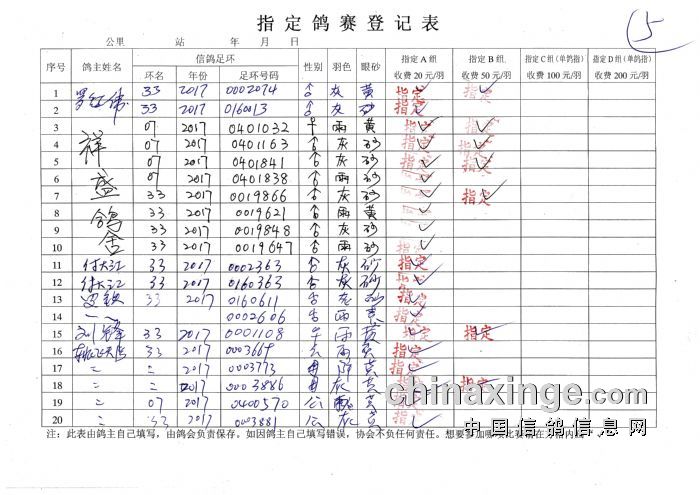 指定鸽赛登记表
5
公里 站 年 月 日
序号 鸽主姓名 信鸽足环 性别 羽色 眼砂 指定A组 指定B组 指定C组(单鸽指) 指定D组(单鸽指)
环名 年份 足环号码 收费20元/羽 收费50元/羽 收费100元/羽 收费200元/羽
1 罗红伟 33 2017 0002074 ♂ 灰 黄 指定 指定
2 33 2017 0160013 ♂ 灰 砂 指定
3 祥盛鸽舍 07 2017 0401032 ♀ 雨 黄 指定 指定
4 07 2017 0401163 ♂ 灰 砂 指定 指定
5 07 2017 0401841 ♂ 灰 砂 指定 指定
6 07 2017 0401838 ♂ 雨 砂
7 33 2017 0019866 ♂ 灰 砂 指定 指定
8 33 2017 0019621 ♂ 雨 黄
9 33 2017 0019848 ♂ 雨 砂
10 33 2017 0019647 ♂ 雨 砂 指定
11 付大江 33 2017 0002363 灰 砂 指定
12 付大江 33 2017 0160363 灰 砂 指定
13 33 2017 0160611 指定
14 0002606 雨 指定
15 刘锋 33 2017 0001108 雨 黄 指定 指定
16 33 2017 0003669 雨 黄 指定
17 2017 0003773 黄 指定
18 2017 0003886 灰 黄 指定 指定
19 07 2017 0400570 公 黄 指定
20 33 2017 0003881 公 灰 黄 指定
注:此表由鸽主自己填写,由鸽会负责保存。如因鸽主自己填写错误,协会不负任何责任。想要参加哪项比赛请在方格内
chinaxinge.com
中国信鸽信息网